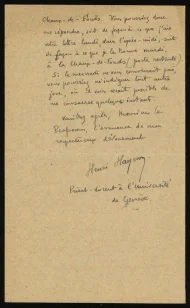 Chaux-de-Fonds. Vous pourriez donc
me répondre, soit de façon à ce que j'aie
votre lettre lundi dans l'après-midi, soit
de façon à ce que je la trouve mardi,
à la Chaux-de-Fonds (poste restante).
Si le mercredi ne vous convenait pas,
vous pourriez m'indiquer tout autre
jour, où il vous serait possible de
me consacrer quelques instants.
Veuillez agréer, Monsieur le
Professeur, l'assurance de mon
respectueux dévouement
Henri
Privat-docent à l'Université
de Genève